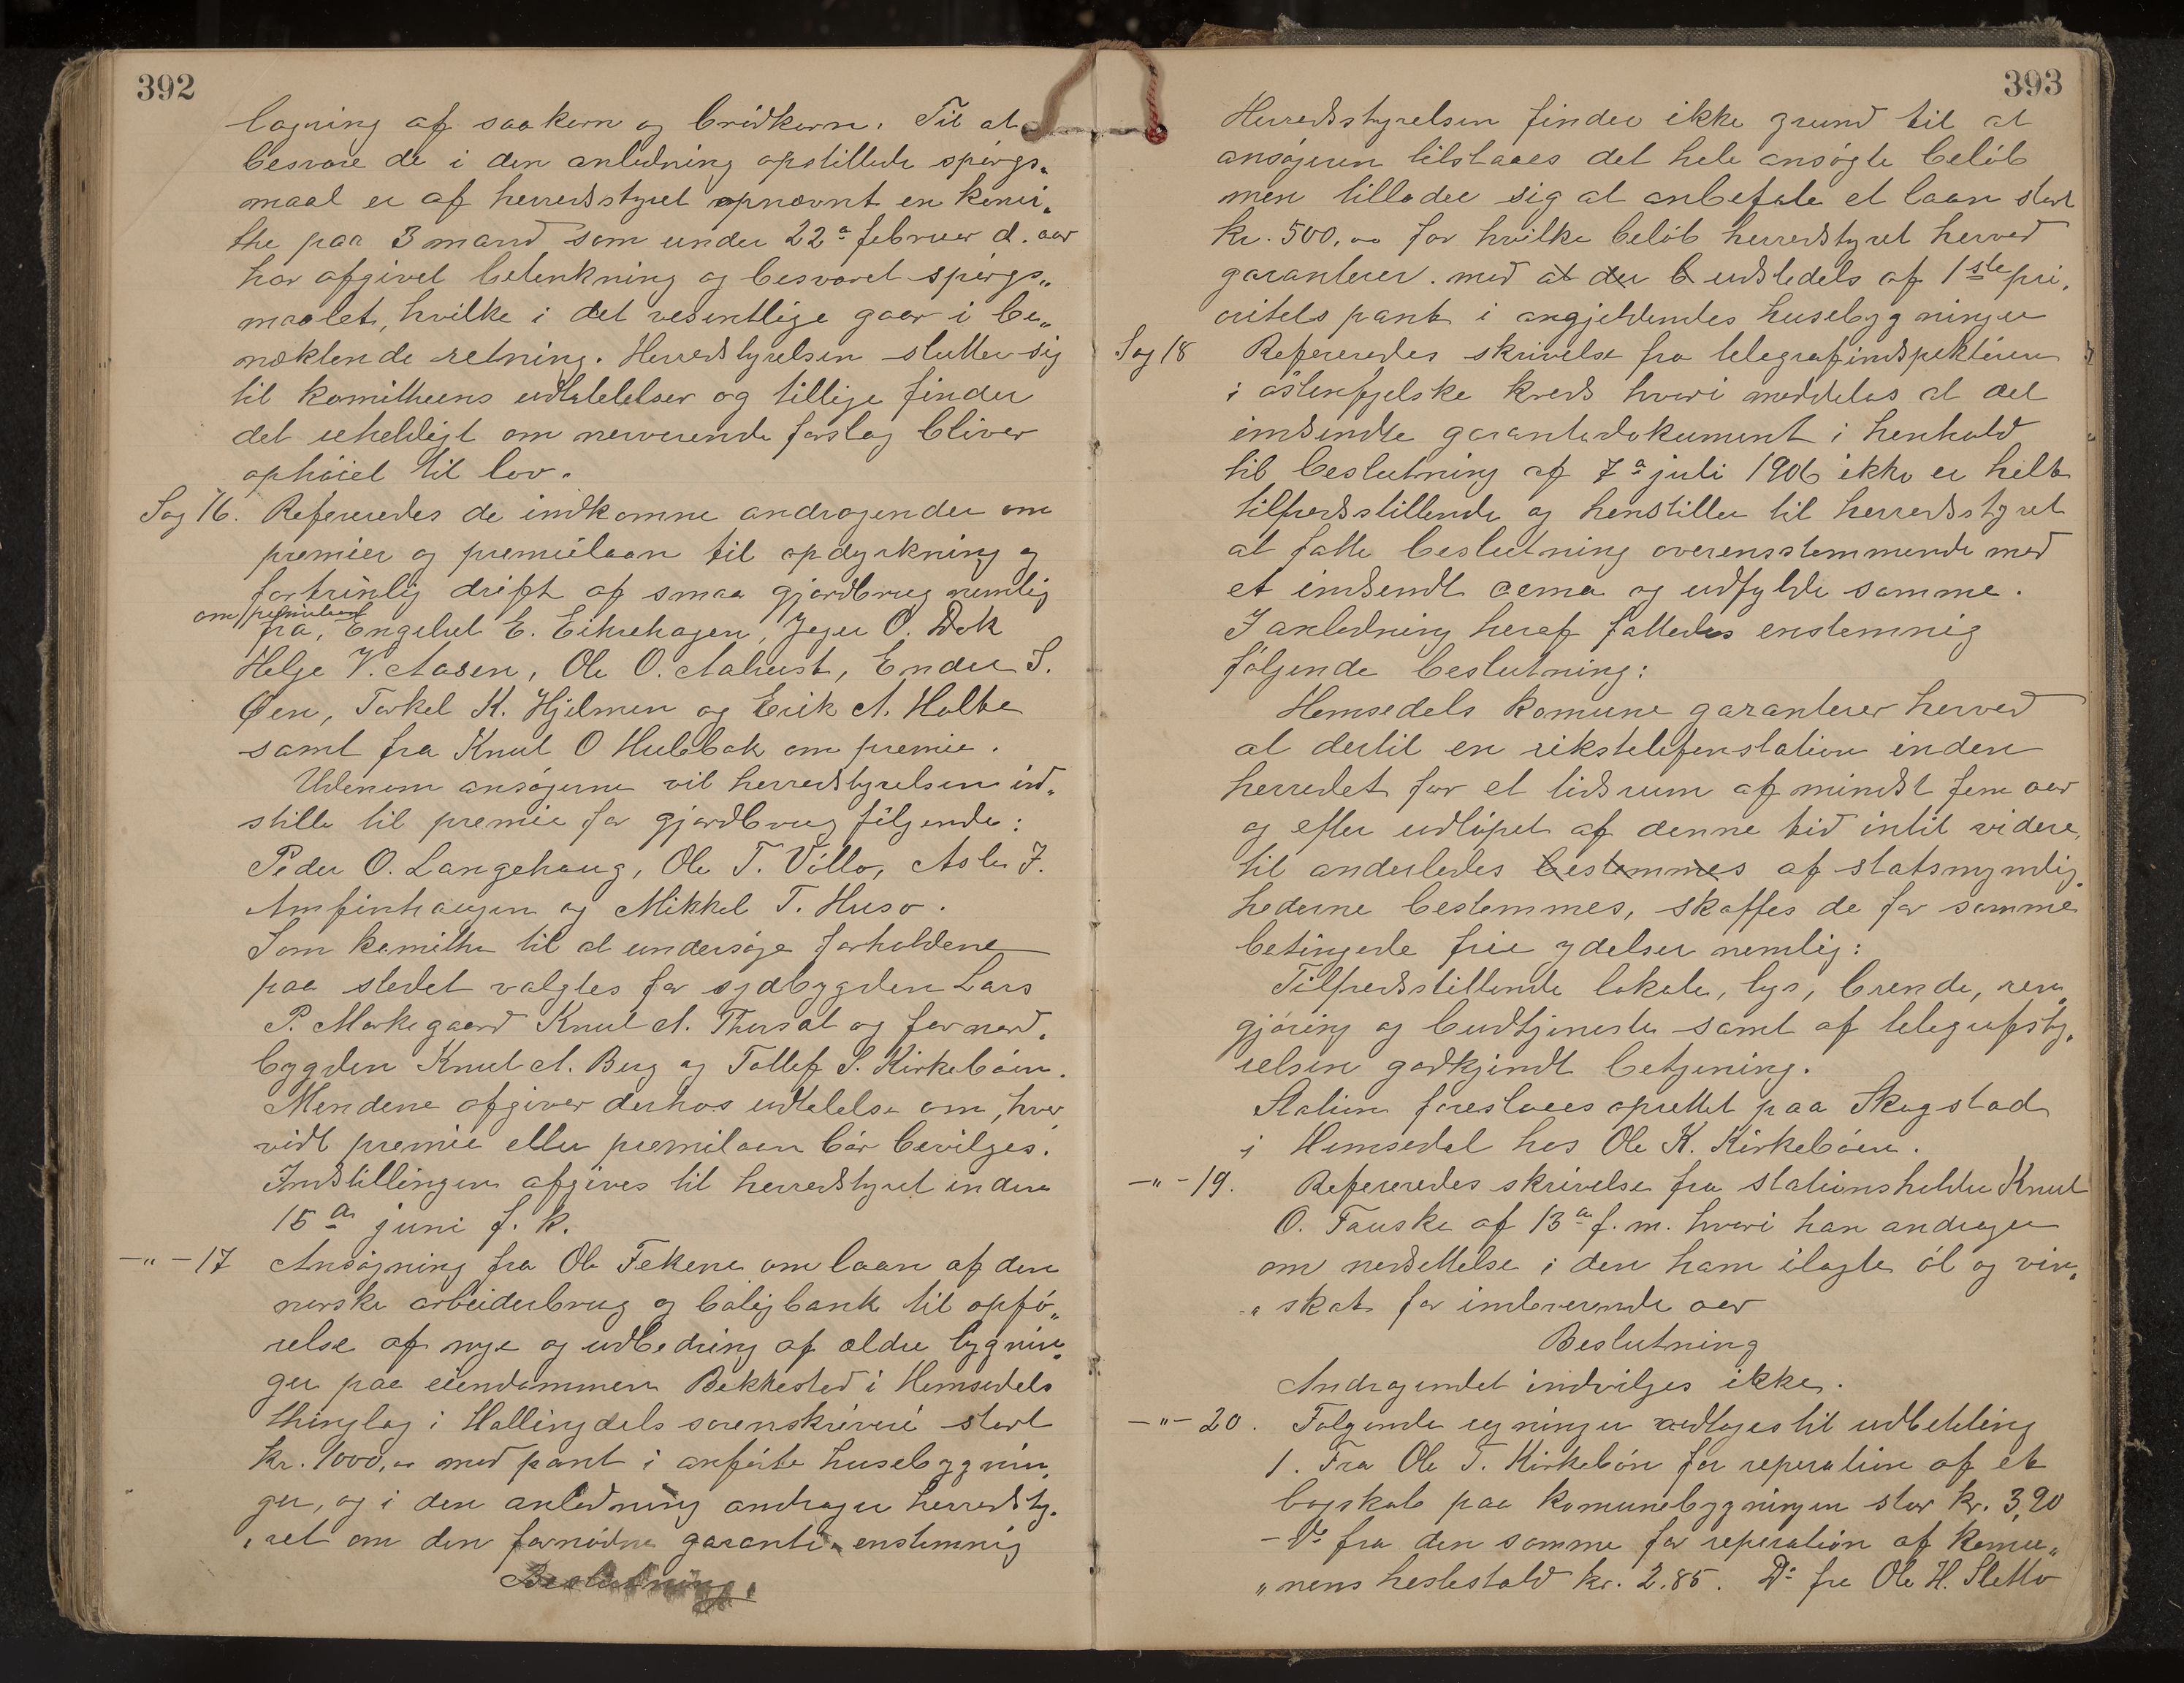 392
lagning af saakorn og brödkorn. Til at
besvare de i den anledning opstillede spörgs„
maal er af herredsstyret opnævnt en komi„
the paa 3 mand som under 22a februar d. aar
har afgivet betenkning og besvaret spörgs„
maalet, hvilke i det vesentlige gaar i be„
nektende retning. Herredstyrelsen slutter sig
til komitheens udtalelelser og tillige finder
det uheldigt om nerverende forslag bliver
ophöiet til lov.
Sag 16. Refereredes de indkomne andragender om
premier og premielaan til opdyrkning og
fortrinlig drift af smaa gjordbrug nemlig
om premielaan
fra, Engebret E. Eikrehagen, Jeger O. Dok
Helge V. Aasen, Ole O. Aalrust, Ender S.
Øen, Torkel K. Hjelmen og Erik A. Holte
samt fra Knut O Hulbak om premie.
Udenom ansögerne vil herredstyrelsen ind„
stille til premie for gjordbrug fölgende:
Peder O. Langehaug, Ole T. Völlo, Asle J.
Amfinhaugen og Mikkel T. Huso.
Som komithe til at undersöge forholdene
paa stedet valgtes for sydbygden Lars
P. Morkegaard Knut A. Thorsat og for nord„
bygden Knut A. Berg og Tollef S. Kirkeböen.
Mendene afgiver derhos udtalelse om, hver
vidt premie eller premielaan bör bevilges.
Indstillingen afgives til herredstyret inden
15de juni f. k.
—„— 17 Ansögning fra Ole Fekene om laan af den
norske arbeiderbrug og boligbank til opfö„
relse af nye og udbedring af ældre bygnin„
ger paa eiendommen Bekkested i Hemsedels
thinglag i Hallingdals sorenskriveri stort
kr. 1000,00 med pant i anförte husebygnin„
ger, og i den anledning andrager herredsty„
„ret om den fornödne garanti enstemnig
Beslutning.
393
Herredsstyrelsen finder ikke grund til at
ansögeren tilstaaes det hele ansögte belöb
men tillader sig at anbefale et laan stort
kr. 500,00 for hvilke belöb herredstyret herved
garanterer. med at der b udstedels af 1ste pri„
oritets pant i angjeldendes husebygninger
Sag 18 Refereredes skrivelse fra telegrafindspektören
i östenfjelske kreds hvori meddeles at det
indsendte garantidokument i henhold
til beslutning af 7a juli 1906 ikke er helt
tilfredsstillende og henstiller til herredsstyret
at fatte beslutning overensstemmende med
et indsendt cema og udfylde samme.
I anledning heraf fattedes enstemnig
fölgende beslutning:
Hemsedels komune garanterer herved
at dertil en rikstelefonstation inden
herredet for et tidsrum af mindst fem aar
og efter udlöpet af denne tid intil videre,
til anderledes bestemmes af statsmyndig„
hederne bestemmes, skaffes de for samme
betingede frie ydelser nemlig:
Tilfredsstillende lokale, lys, brende, ren„
gjöring og budtjeneste samt af telegrafsty„
relsen godkjendt betjening.
Station foreslaaes oprettet paa Skogstad
i Hemsedal hos Ole K. Kirkeböen.
—„— 19. Refereredes skrivelse fra stationsholder Knut
O. Fauske af 13de f. m. hvori han andrager
om nedsettelse i den ham ilagte öl og vin„
„skat for indeverende aar
Beslutning
Andragendet indvilges ikke.
—„— 20. Folgende regninger vedtoges til udbetaling
1. Fra Ole T. Kirkebön for reperation af et
bogskab paa komunebygningen stor kr. 3,90
— Do fra den samme for reperation af komu„
„nens hestestald kr. 2.85. Do fra Ole H. Sletto